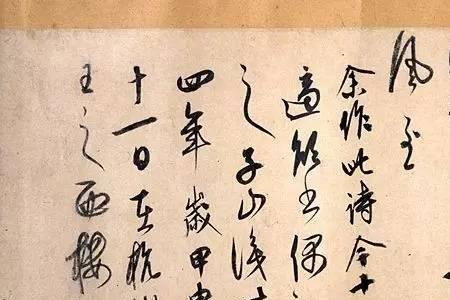 風至
余作此詩今十
適欲書偶
之子山
四年歲甲申
十一日在杭
王之西樓